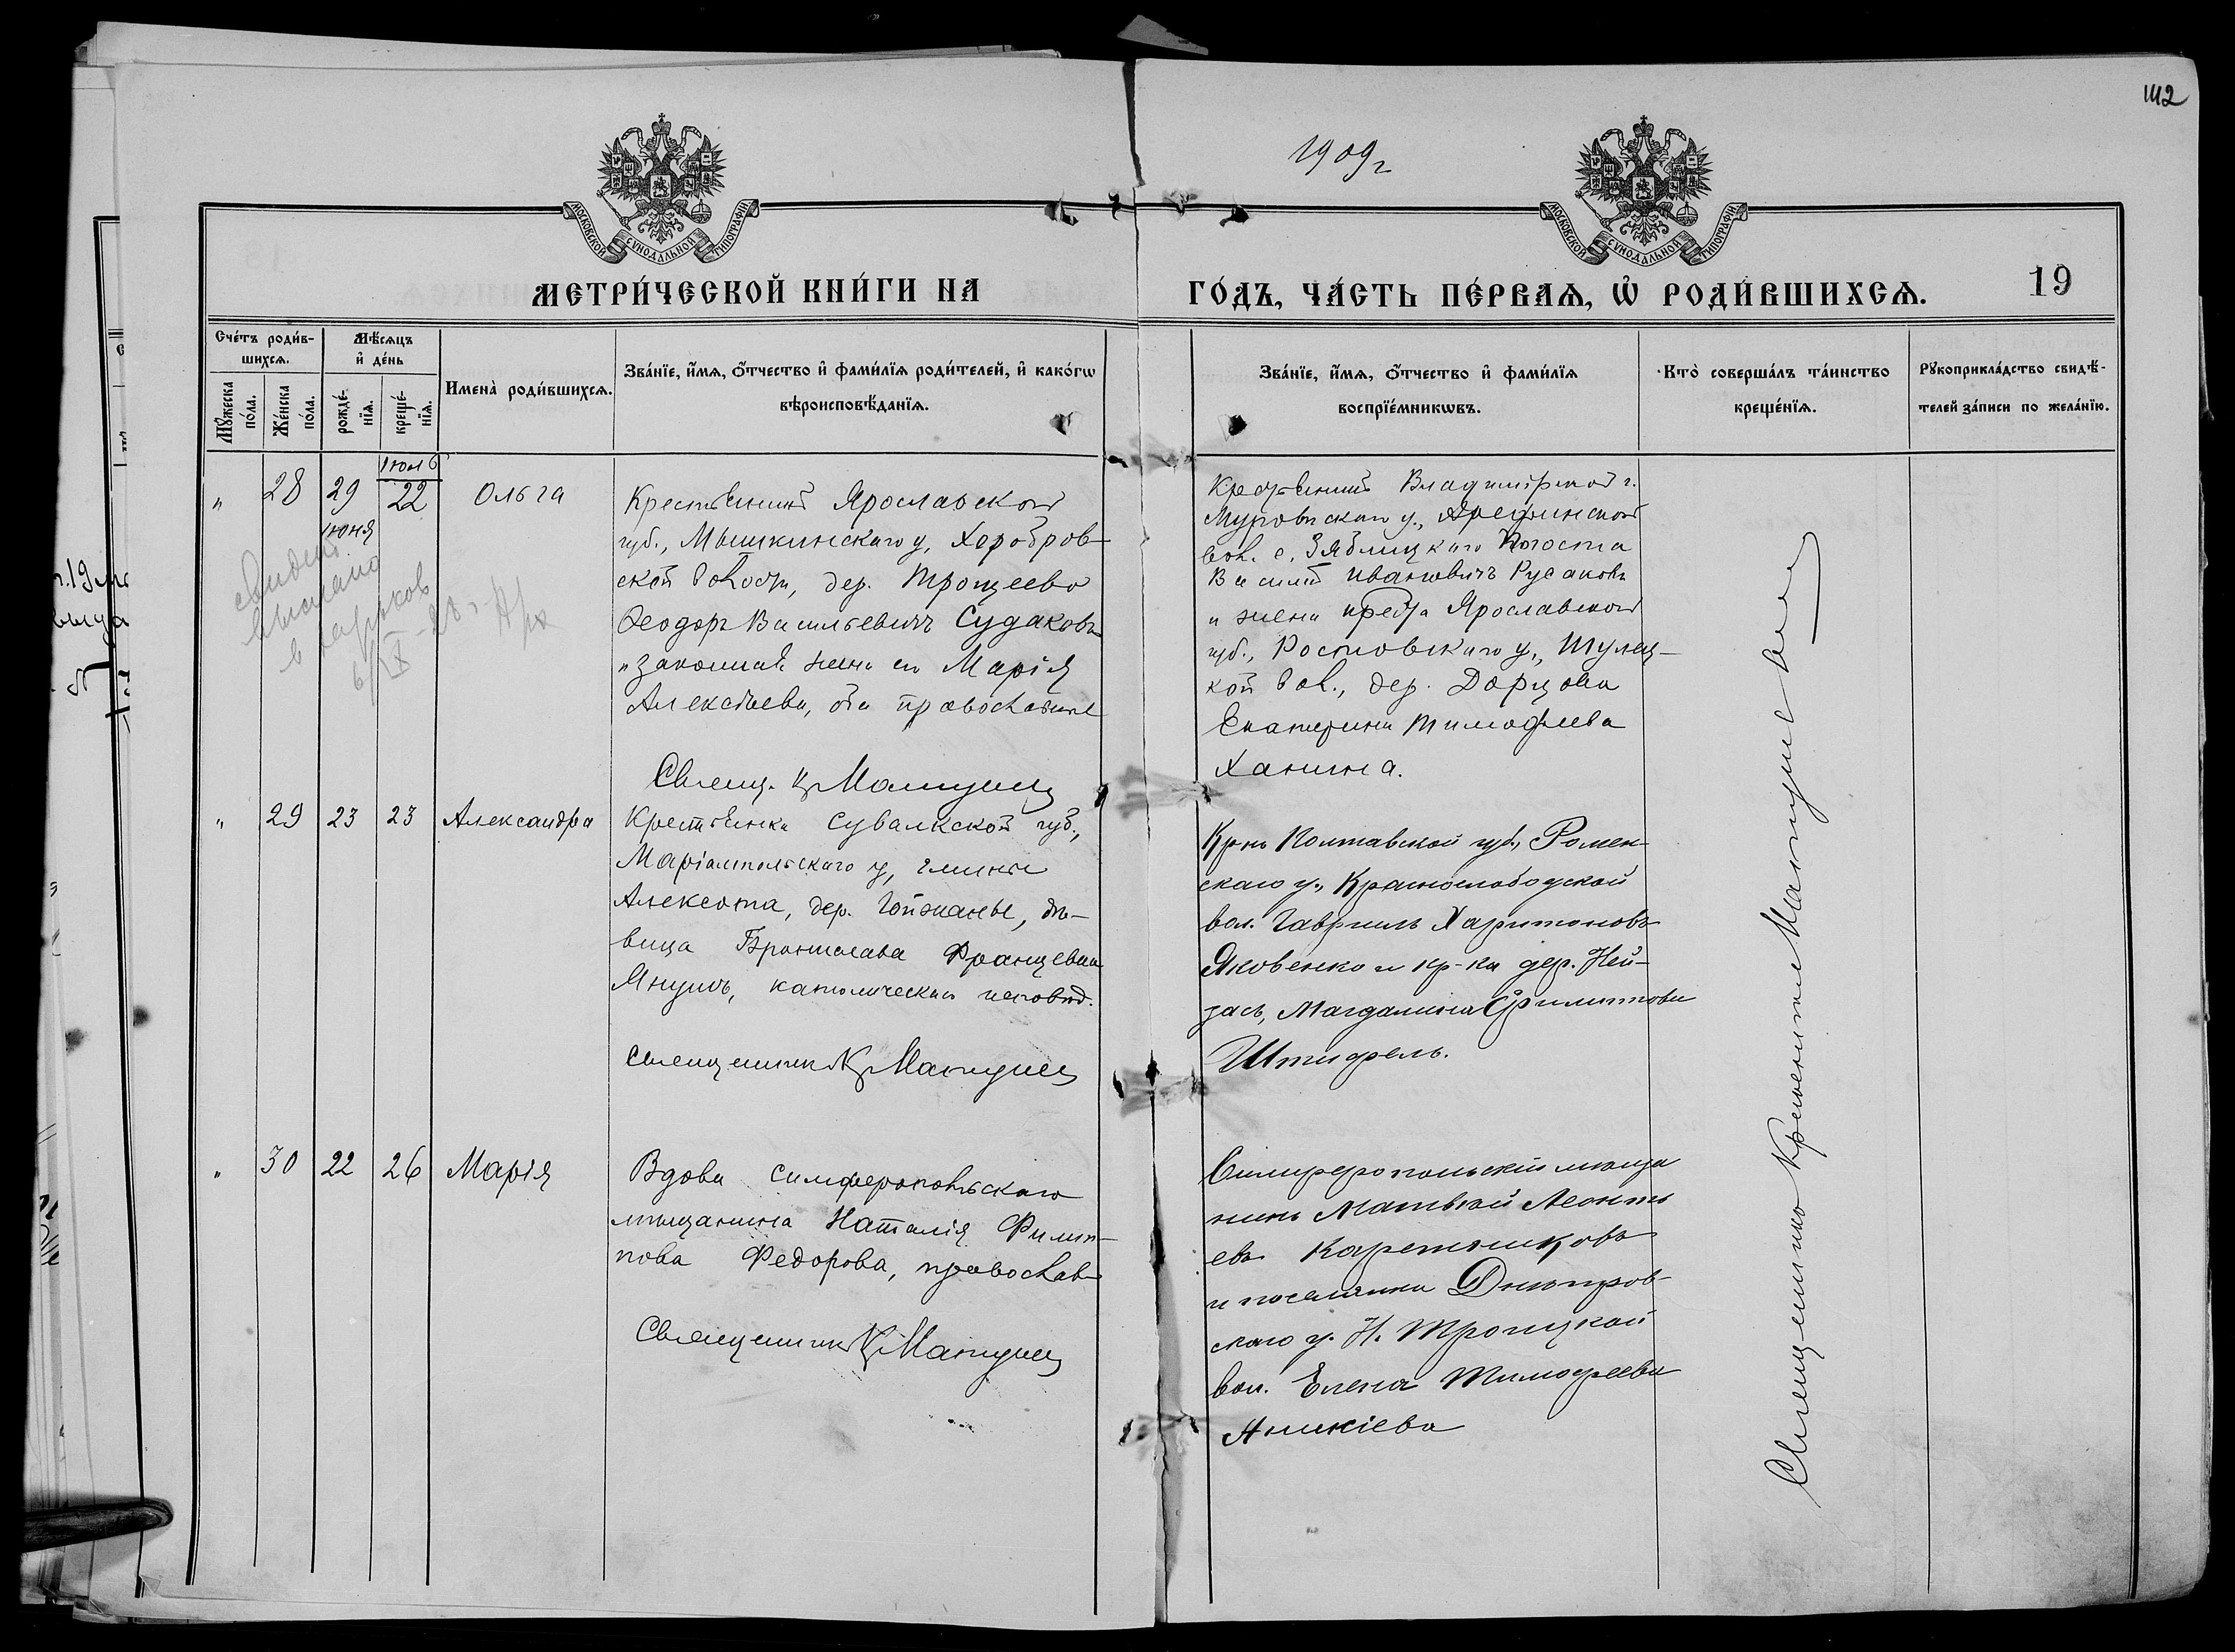 112
1909 г
МОСКОВСКОЙ СѴНОДАЛЬНОЙ ТИПОГРАФІИ
МОСКОВСКОЙ СѴНОДАЛЬНОЙ ТИПОГРАФІИ
МЕТРИ́ЧЕСКОЙ КНИ́ГИ НА
ГО́ДЪ, ЧА́СТЬ ПЕ́РВАѦ, Ѡ҆ РОДИ́ВШИХСѦ.
19
Сче́тъ роди́в-
шихсѧ.
Мꙋ́жеска по́ла.
Же́нска по́ла.
Мѣ́сѧцъ
и҆ де́нь
рожде́-
нїѧ.
креще́-
нїѧ.
Имена̀ роди́вшихсѧ.
Зва́нїе, и҆́мѧ, ѻ҆́тчество и҆ фами́лїѧ роди́телей, и҆ како́гѡ
вѣроисповѣ́данїѧ.
Зва́нїе, и҆́мѧ, ѻ҆́тчество и҆ фами́лїѧ
воспрїе́мникѡвъ.
Кто̀ соверша́лъ та́инство
креще́нїѧ.
Рꙋкоприкла́дство свидѣ́-
телей за́писи по жела́нїю.
"
28
29
июня
22
Ольга
Крестьянинъ Ярославской
губ., Мышкинскаго у., Хоробров-
ской волости, дер. Трощеево
Ѳеодоръ Васильевичъ Судаковъ
и законная жена его Марія
Алексѣева, оба православные
Священ. К Мантушев
выслано
в Харьков
6/IX
Крестьянинъ Владимірской г.
Муромскаго у.,
вол. с. Зяблицкаго Погоста
Василій Ивановичъ Русаковъ
и жена крест-на Ярославской
губ., Ростовскаго у., Шулец-
кой вол., дер. Дарцова
Екатерина Тимофеева
Ханина.
"
29
23
23
Александра
Крестьянка Сувалкской губ.,
Маріампольскаго у, гмины
Алексота, дер. дѣ-
вица Бронислава Францевна
Янушъ, католическаго исповѣд.
Священникъ К Мантушев
Кр-нъ Полтавской губ, Ромен-
скаго у., Краснослободской
вол. Гавриилъ Харитоновъ
Яковенко и кр-ка дер. Ней-
зацъ, Магдалина Филиппова
Штифель.
"
30
22
26
Марія
Вдова Симферопольскаго
мѣщанина Наталія Филип-
пова Федорова, православ
Священникъ К Мантушев
Симферопольскій мѣща
нинъ Матвѣй Леонть
евъ Каретниковъ
и поселянка Днѣпров-
скаго у. Н. Троицкой
вол. Елена Тимофеева
Аникіева
Священникъ